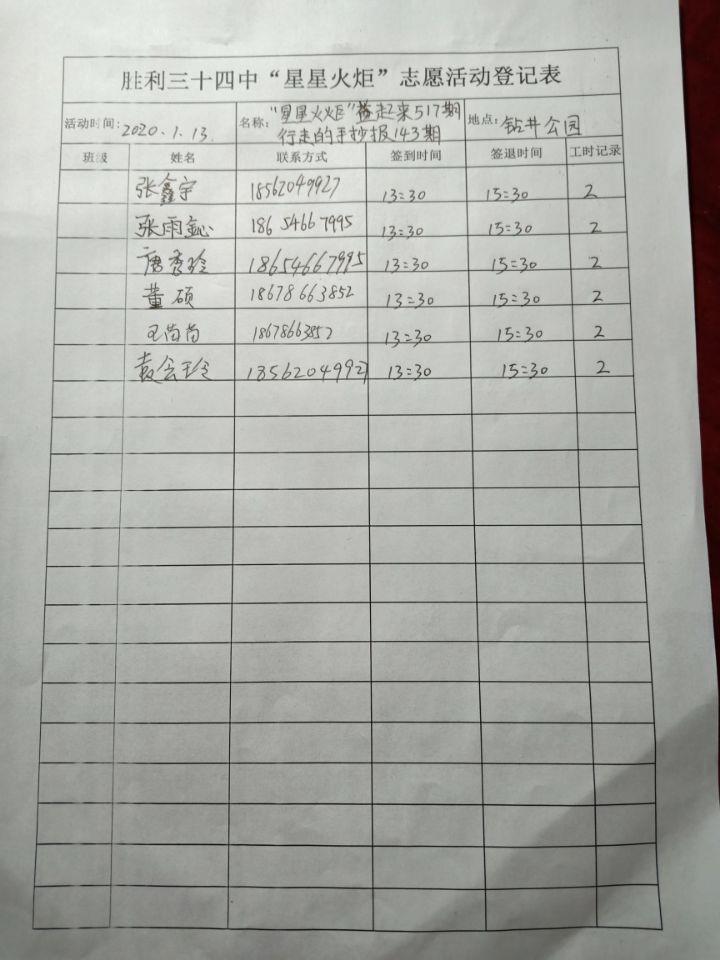 胜利三十四中“星星火炬”志愿活动登记表
活动时间: 2020.1.13. 名称: “星星火炬”益起来517期 行走的手抄报143期 地点: 钻井公园
班级 姓名 联系方式 签到时间 签退时间 工时记录
张鑫宇 18562049927 13:30 15:30 2
张雨 18654667995 13:30 15:30 2
唐秀玲 18654667995 13:30 15:30 2
董硕 18678663852 13:30 15:30 2
王尚尚 18678663852 13:30 15:30 2
袁会玲 18562049927 13:30 15:30 2